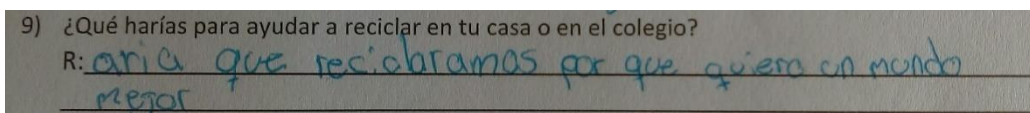 9) ¿Qué harías para ayudar a reciclar en tu casa o en el colegio?
R: aria que reciclaramos por que quiero un mundo
mejor